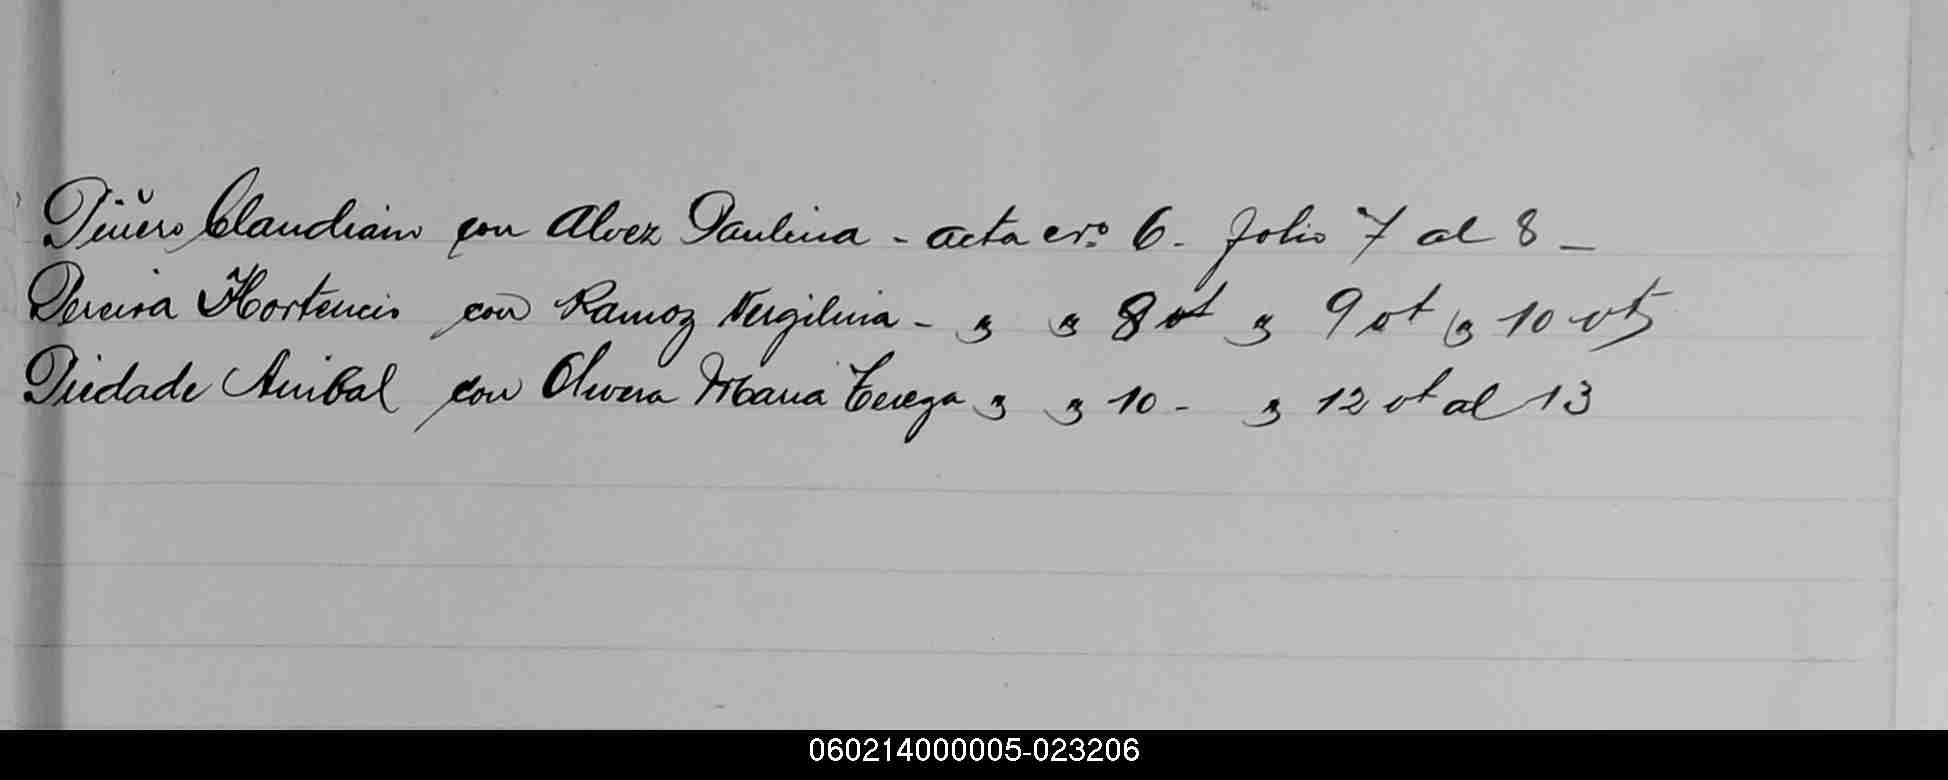 Piñero Claudiano con Alvez Paulina - acta nro. 6 - folio 7 al 8 -
Pereira Hortencio con Ramoz Vergilina - " " 8 vt " 9 vt " 10 vt
Piedade Anibal con Olivera Maria Tereza " " 10 - " 12 vt al 13
060214000005-023206